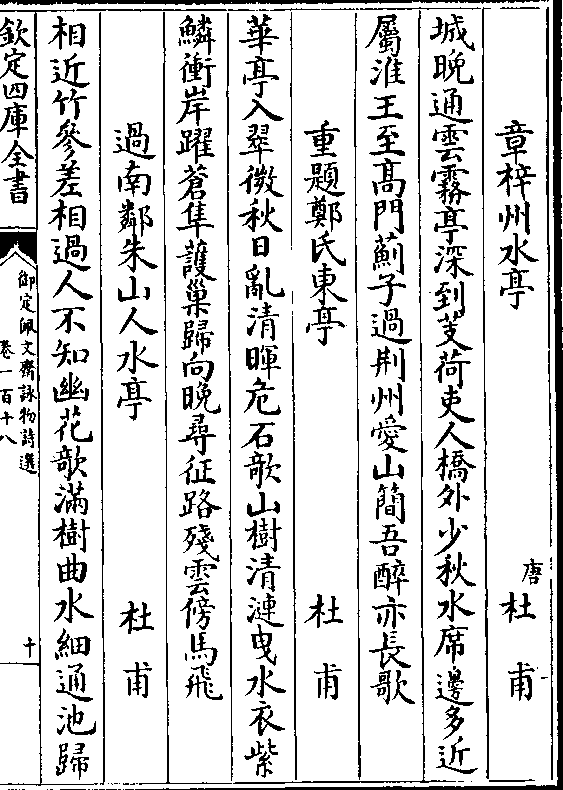 章梓州水亭　唐杜甫
城晚通雲霧亭深到芰荷吏人橋外少秋水席邊多近
屬淮王至髙門薊子過荆州愛山簡吾醉亦長歌
重題鄭氏東亭　杜甫
華亭入翠微秋日亂清暉危石欹山樹清漣曳水衣紫
鱗衝岸躍蒼隼䕶巢歸向晚尋征路殘雲傍馬飛
過南鄰朱山人水亭　杜甫
相近竹參差相過人不知幽花欹滿樹曲水細通池歸
欽定四庫全書
御定佩文齋詠物詩選
卷一百十八
十